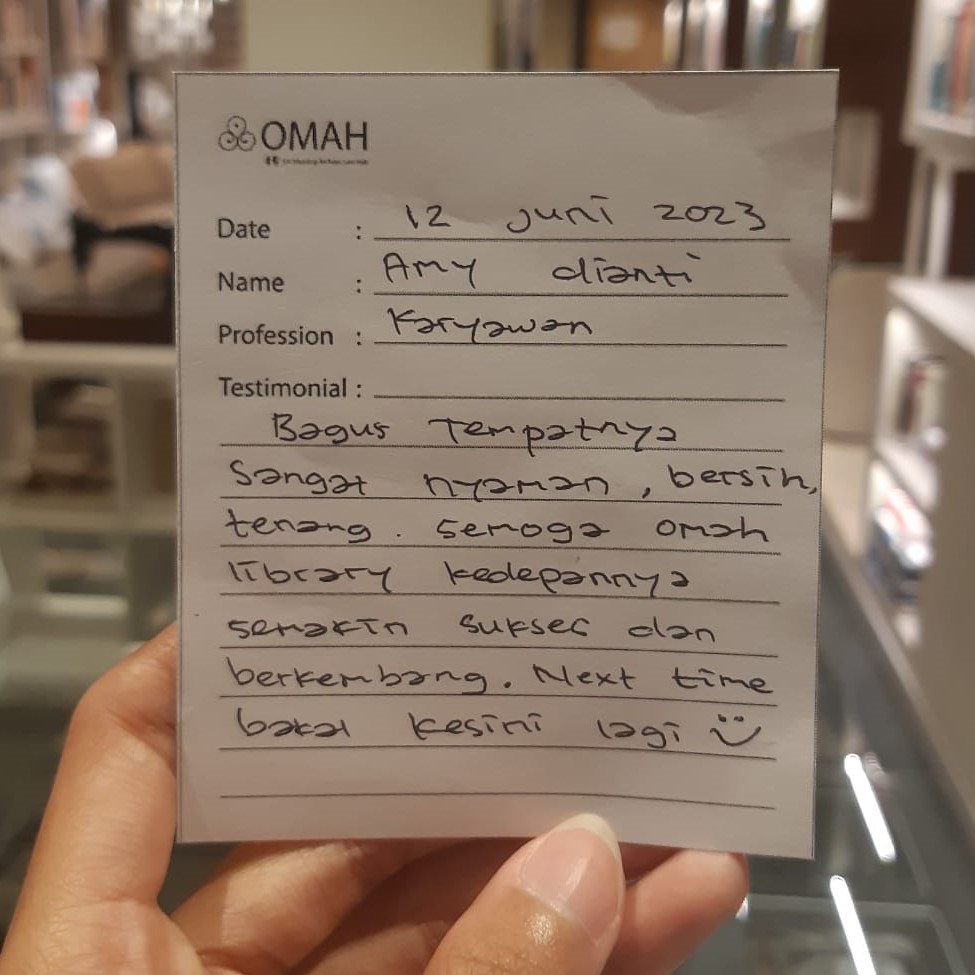 OMAH
Date : 12 Juni 2023
Name : Amy dianti
Profession : Karyawan
Testimonial :
Bagus Tempatnya
Sangat nyaman, bersih,
tenang. semoga omah
library kedepannya
semakin sukses dan
berkembang. Next time
bakal kesini lagi